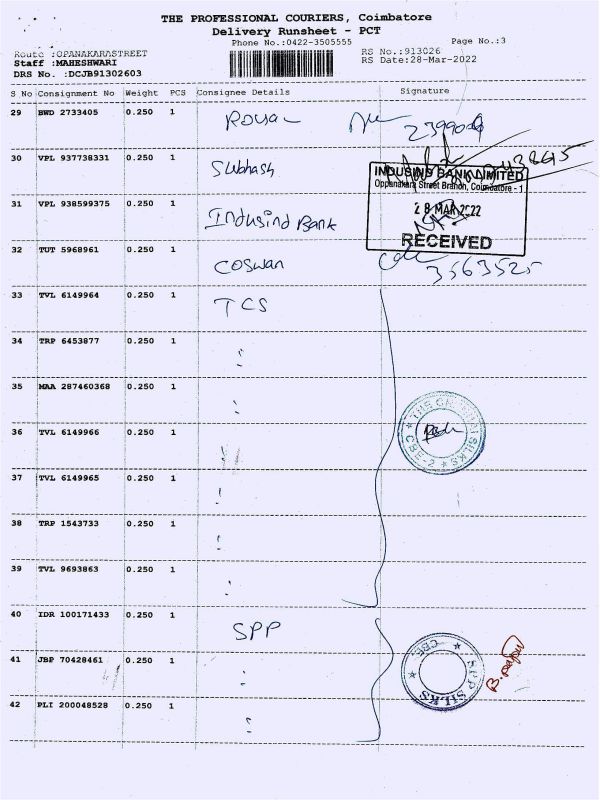 THE PROFESSIONAL COURIERS, Coimbatore
Delivery Runsheet - PCT
Phone No.:0422-3505555 Page No.:3
Route :OPANAKARASTREET RS No.:913026
Staff :MAHESHWARI RS Date:28-Mar-2022
DRS No. :DCJB91302603
S No Consignment No Weight PCS Consignee Details Signature
29 BWD 2733405 0.250 1 Royal 2399009
30 VPL 937738331 0.250 1 Subhash
INDUSIND BANK LIMITED
Oppanakara Street Branch, Coimbatore - 1
31 VPL 938599375 0.250 1 Indusind Bank 28 MAR 2022
RECEIVED
32 TUT 5968961 0.250 1 COSWAN 3563525
33 TVL 6149964 0.250 1 TCS
34 TRP 6453877 0.250 1
35 MAA 287460368 0.250 1
THE CHENNAI SILKS
CBE-2
36 TVL 6149966 0.250 1
37 TVL 6149965 0.250 1
38 TRP 1543733 0.250 1
39 TVL 9693863 0.250 1
40 IDR 100171433 0.250 1 SPP
41 JBP 70428461 0.250 1
SPP SILKS
CBE
42 PLI 200048528 0.250 1